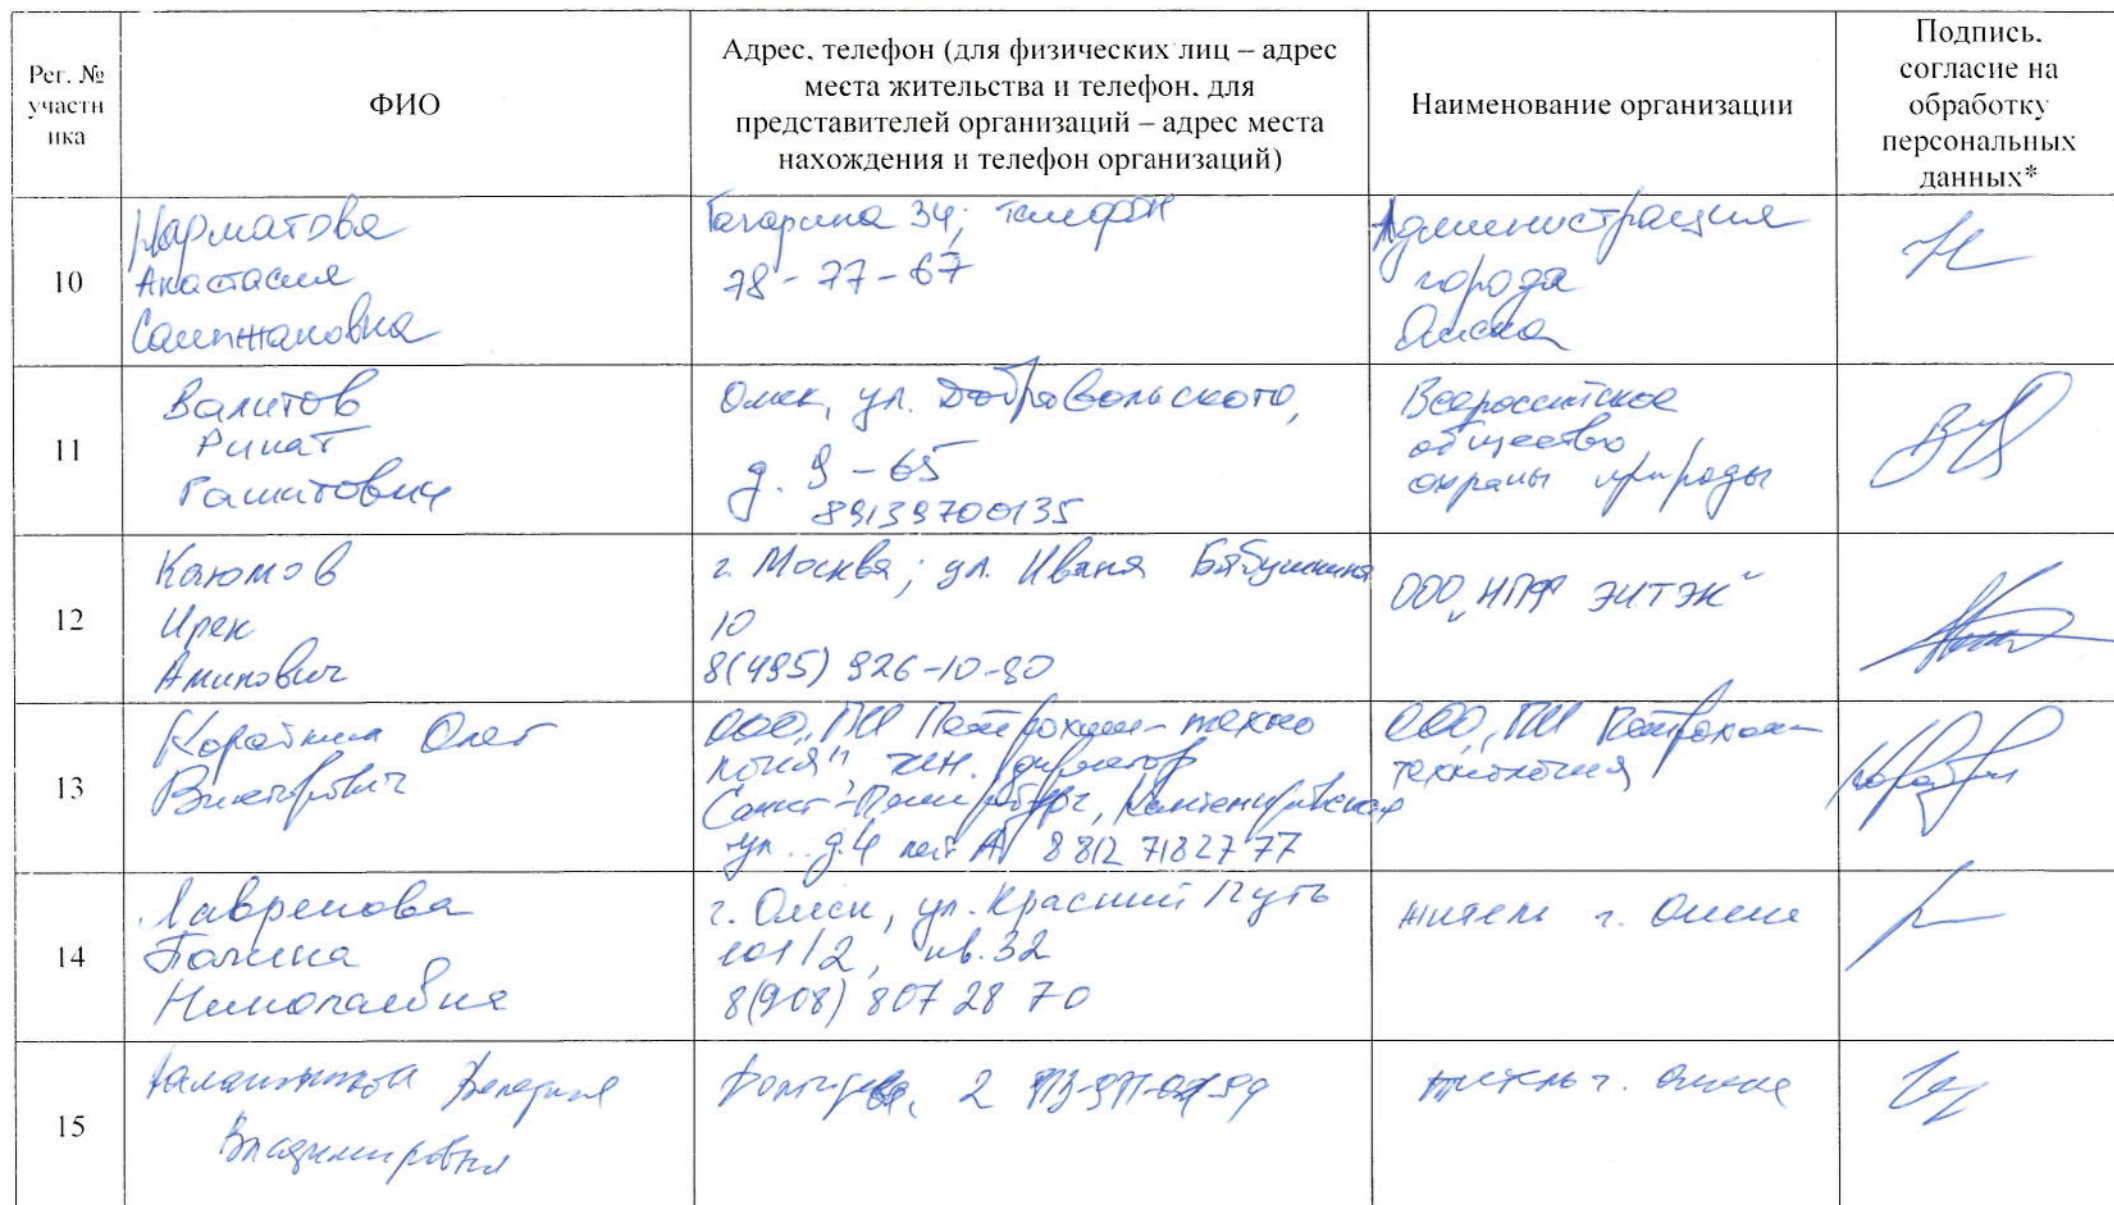 Рег. №
участн
ика
ФИО
Адрес, телефон (для физических лиц – адрес
места жительства и телефон, для
представителей организаций – адрес места
нахождения и телефон организаций)
Наименование организации
Подпись,
согласие на
обработку
персональных
данных*
10
Нарматова
Анастасия
Гагарина 34; телефон
78-77-67
Администрация
города
Омска
11
Валитов
Ринат
Гашитович
Омск, ул. Добровольского,
д. 9-65
89139700135
Всероссийское
общество
охраны природы
12
Каюмов
Ирек
Аминович
г. Москва; ул. Ивана Бабушкина
10
8(495) 926-10-90
ООО „НПФ ЭИТЭК“
13
Олег
Викторович
ООО „ПИ Петрохим-техно
логия", ген. директор
Санкт-Петербург, Кантемировская
ул. д.4 лит А 8 812 7182777
ООО „ПИ Петрохим-
технология
14
Лавренова
Полина
Николаевна
г. Омск, ул. Красный Путь
101/2, кв.32
8(908) 807 28 70
житель г. Омска
15
Владимировна
2
житель г. Омска